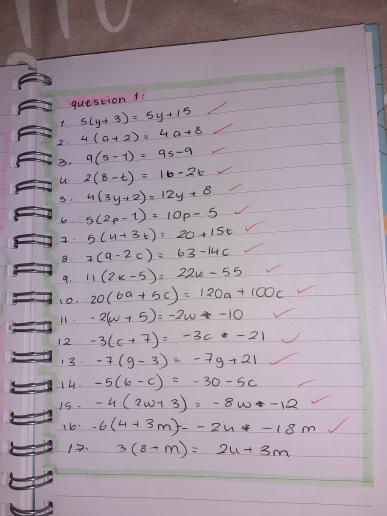 Question 1:
1. 5(y+3) = 5y+15
2. 4(a+2) = 4a+8
3. 9(s-1) = 9s-9
4. 2(8-t) = 16-2t
5. 4(3y+2) = 12y+8
6. 5(2p-1) = 10p-5
7. 5(4+3t) = 20+15t
8. 7(9-2c) = 63-14c
9. 11(2k-5) = 22k-55
10. 20(6a+5c) = 120a+100c
11. -2(w+5) = -2w -10
12. -3(c+7) = -3c -21
13. -7(g-3) = -7g+21
14. -5(6-c) = -30-5c
15. -4(2w+3) = -8w -12
16. -6(4+3m) - -24 -18m
17. 3(8+m) = 24+3m